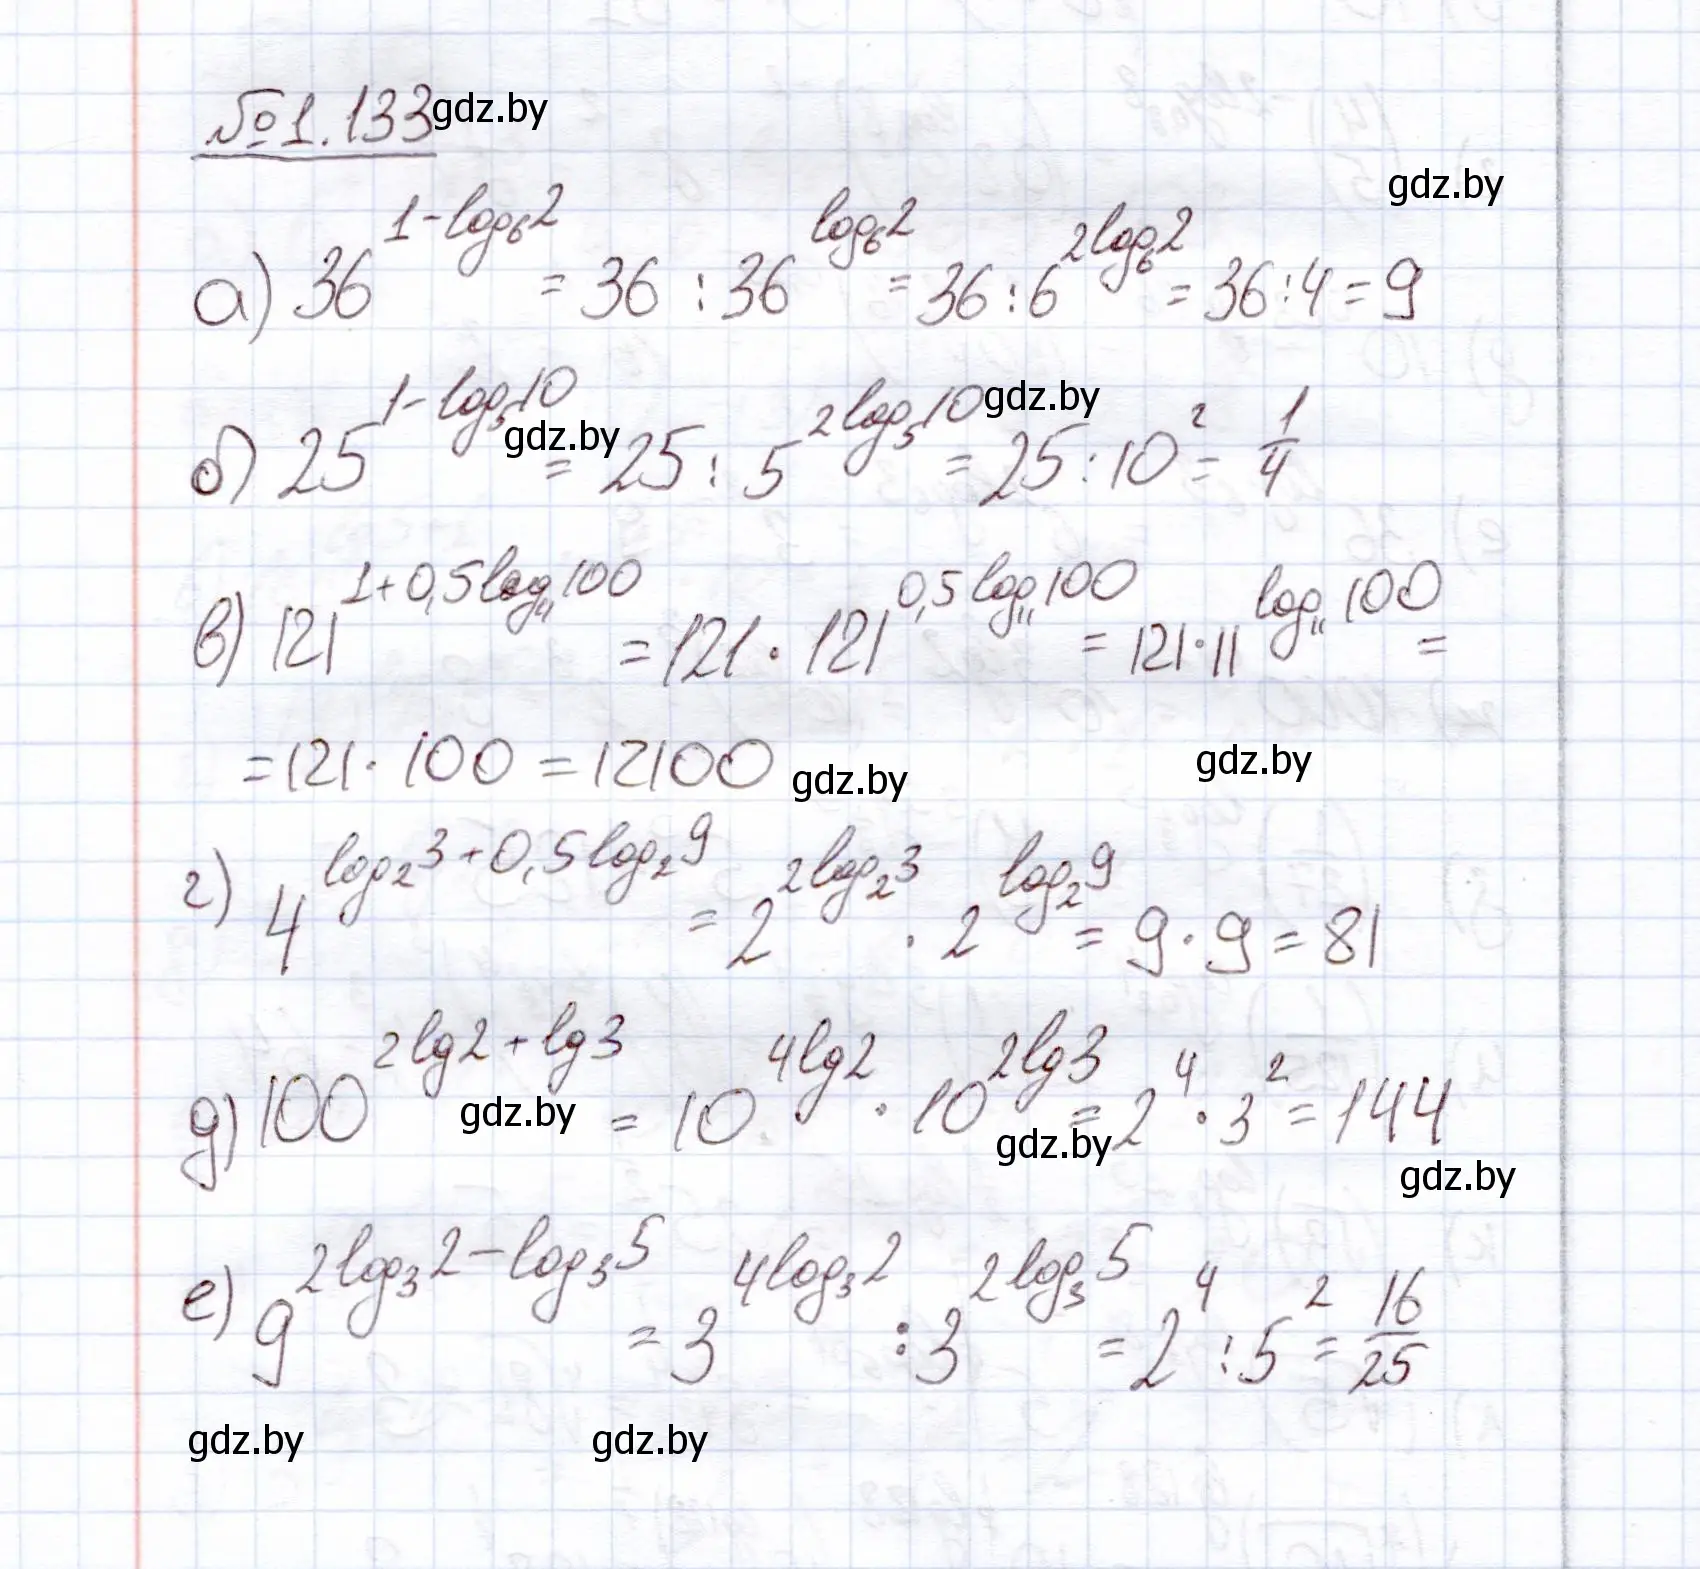 №1.133 gdz.by
gdz.by
а) 36^(1-log₆2) = 36 : 36^(log₆2) = 36 : 6^(2log₆2) = 36 : 4 = 9
б) 25^(1-log₅10) = 25 : 5^(2log₅10) = 25 : 10² = 1/4
gdz.by gdz.by
в) 121^(1+0,5log₁₁100) = 121 · 121^(0,5log₁₁100) = 121 · 11^(log₁₁100) =
= 121 · 100 = 12100 gdz.by gdz.by
г) 4^(log₂3+0,5log₂9) = 2^(2log₂3) · 2^(log₂9) = 9 · 9 = 81
д) 100^(2lg2+lg3) = 10^(4lg2) · 10^(2lg3) = 2⁴ · 3² = 144
gdz.by gdz.by gdz.by
е) 9^(2log₃2-log₃5) = 3^(4log₃2) : 3^(2log₃5) = 2⁴ : 5² = 16/25
gdz.by gdz.by